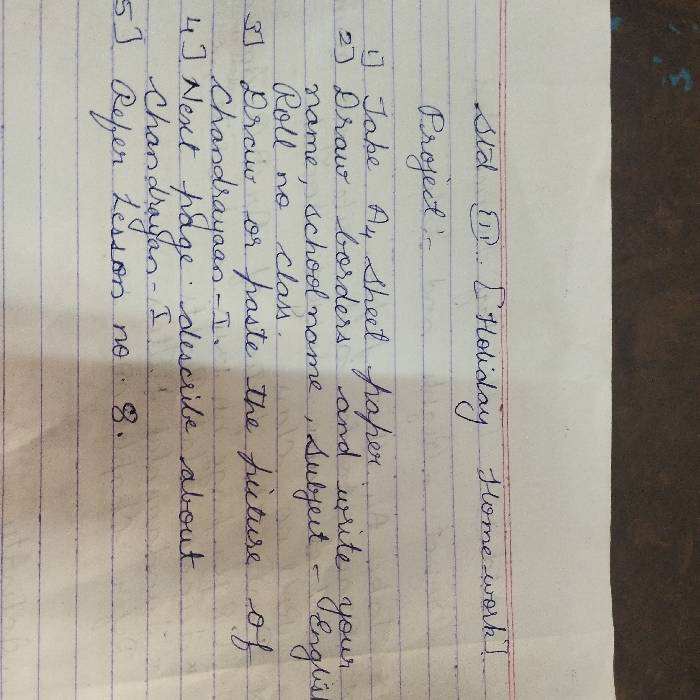 Std III. [Holiday Home-work].
Project :-
1] Take A4 Sheet paper
2] Draw borders and write your
name, school name, Subject - English
Roll no class.
3] Draw or paste the picture of
Chandrayaan - I.
4] Next page describe about
Chandrayan - I
5] Refer Lesson no. 8.